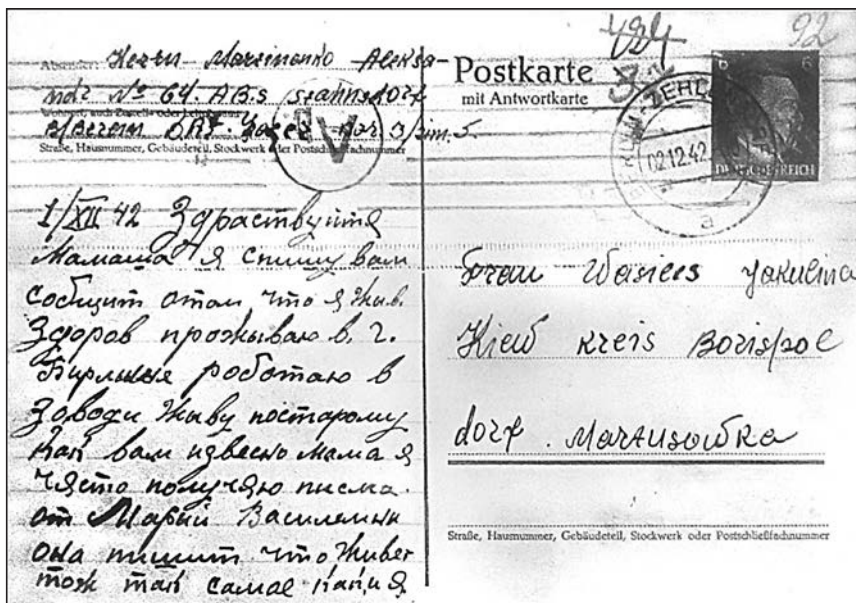 424
92
Absender: Herrn Marzinenko Aleksa-
ndr № 64 ABS Stahnsdorf
Wohnort, auch Zustell- oder Leitpostamt
B/Berlin
Straße, Hausnummer, Gebäudeteil, Stockwerk oder Postschließfachnummer
V
Postkarte
mit Antwortkarte
BERLIN ZEHL
02.12.42
a
6 6
DEUTSCHES REICH
1/XII 42 Здраствуйтя
Мамаша я спишу вам
сообщит отом что я жыв.
Здоров прожываю в. г.
Бирльне роботаю в
Заводи жыву постарому
Как вам извесно Мама я
чясто получяю писма.
от Марыи Василемны
она пишит что живет
тож так самае как и я
Frau Wasiles Jakulina
Kiew Kreis Borispol
dorf. Martusowka
Straße, Hausnummer, Gebäudeteil, Stockwerk oder Postschließfachnummer